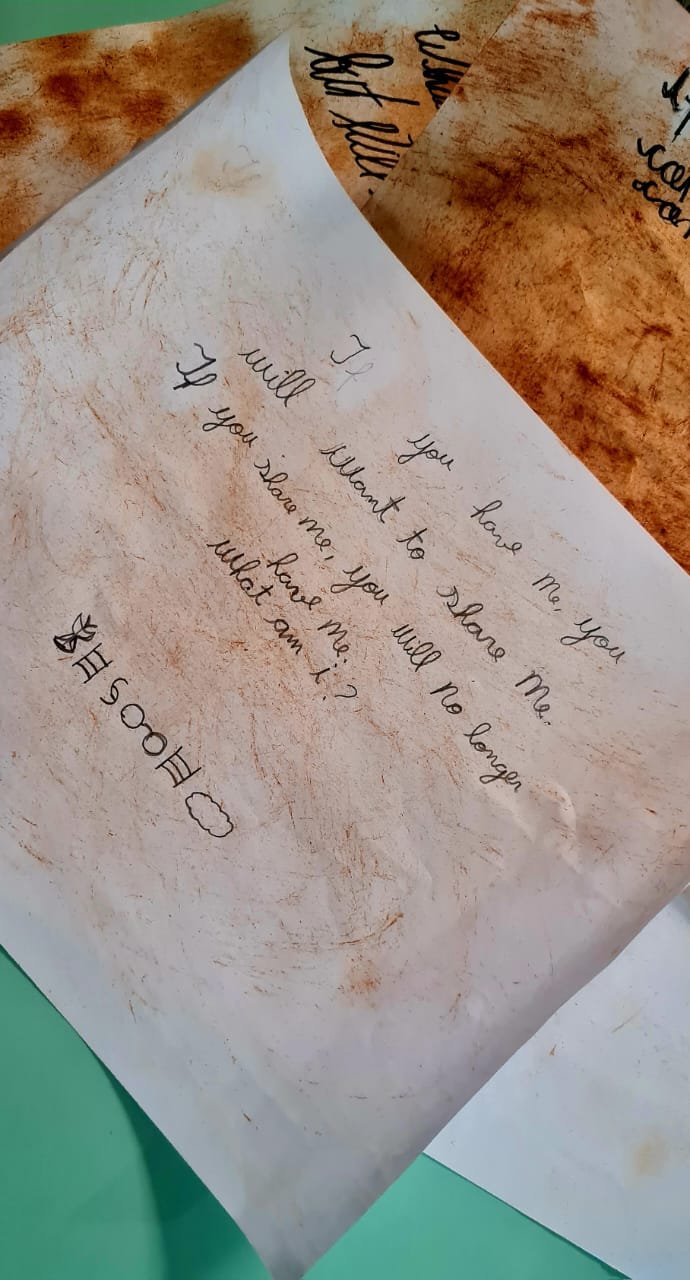 but
If you have me, you
will want to share me.
If you share me, you will no longer
have me.
What am i?